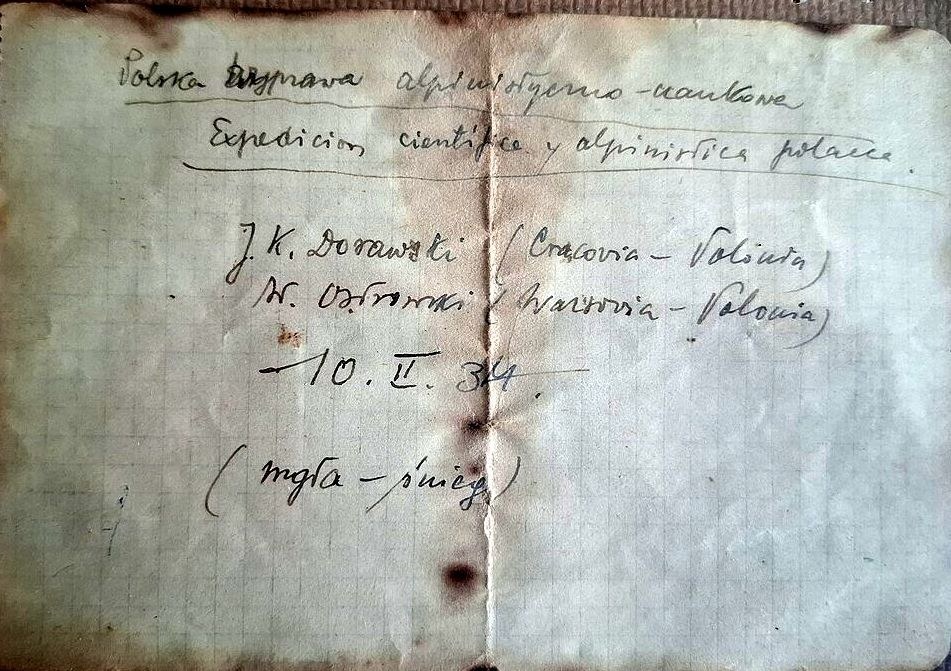 Polska wyprawa alpinistyczno-naukowa
Expedicion científica y alpinistica polaca
J. K. Dorawski (Cracovia - Polonia)
W. Ostrowski (Warsovia - Polonia)
- 10. II. 34.
(mgła - śnieg)